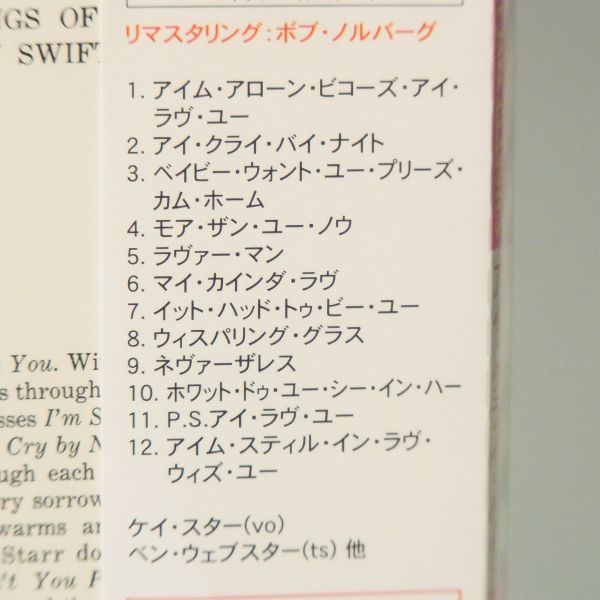 NGS OF
SWIFT
リマスタリング：ボブ・ノルバーグ
1. アイム・アローン・ビコーズ・アイ・
ラヴ・ユー
2. アイ・クライ・バイ・ナイト
3. ベイビー・ウォント・ユー・プリーズ・
カム・ホーム
4. モア・ザン・ユー・ノウ
5. ラヴァー・マン
6. マイ・カインダ・ラヴ
7. イット・ハッド・トゥ・ビー・ユー
8. ウィスパリング・グラス
9. ネヴァーザレス
10. ホワット・ドゥ・ユー・シー・イン・ハー
11. P.S.アイ・ラヴ・ユー
12. アイム・スティル・イン・ラヴ・
ウィズ・ユー
ケイ・スター(vo)
ベン・ウェブスター(ts) 他
You. Wi
s through
sses I'm S
Cry by N
ugh each
ry sorrow
warms an
Starr do
't You P